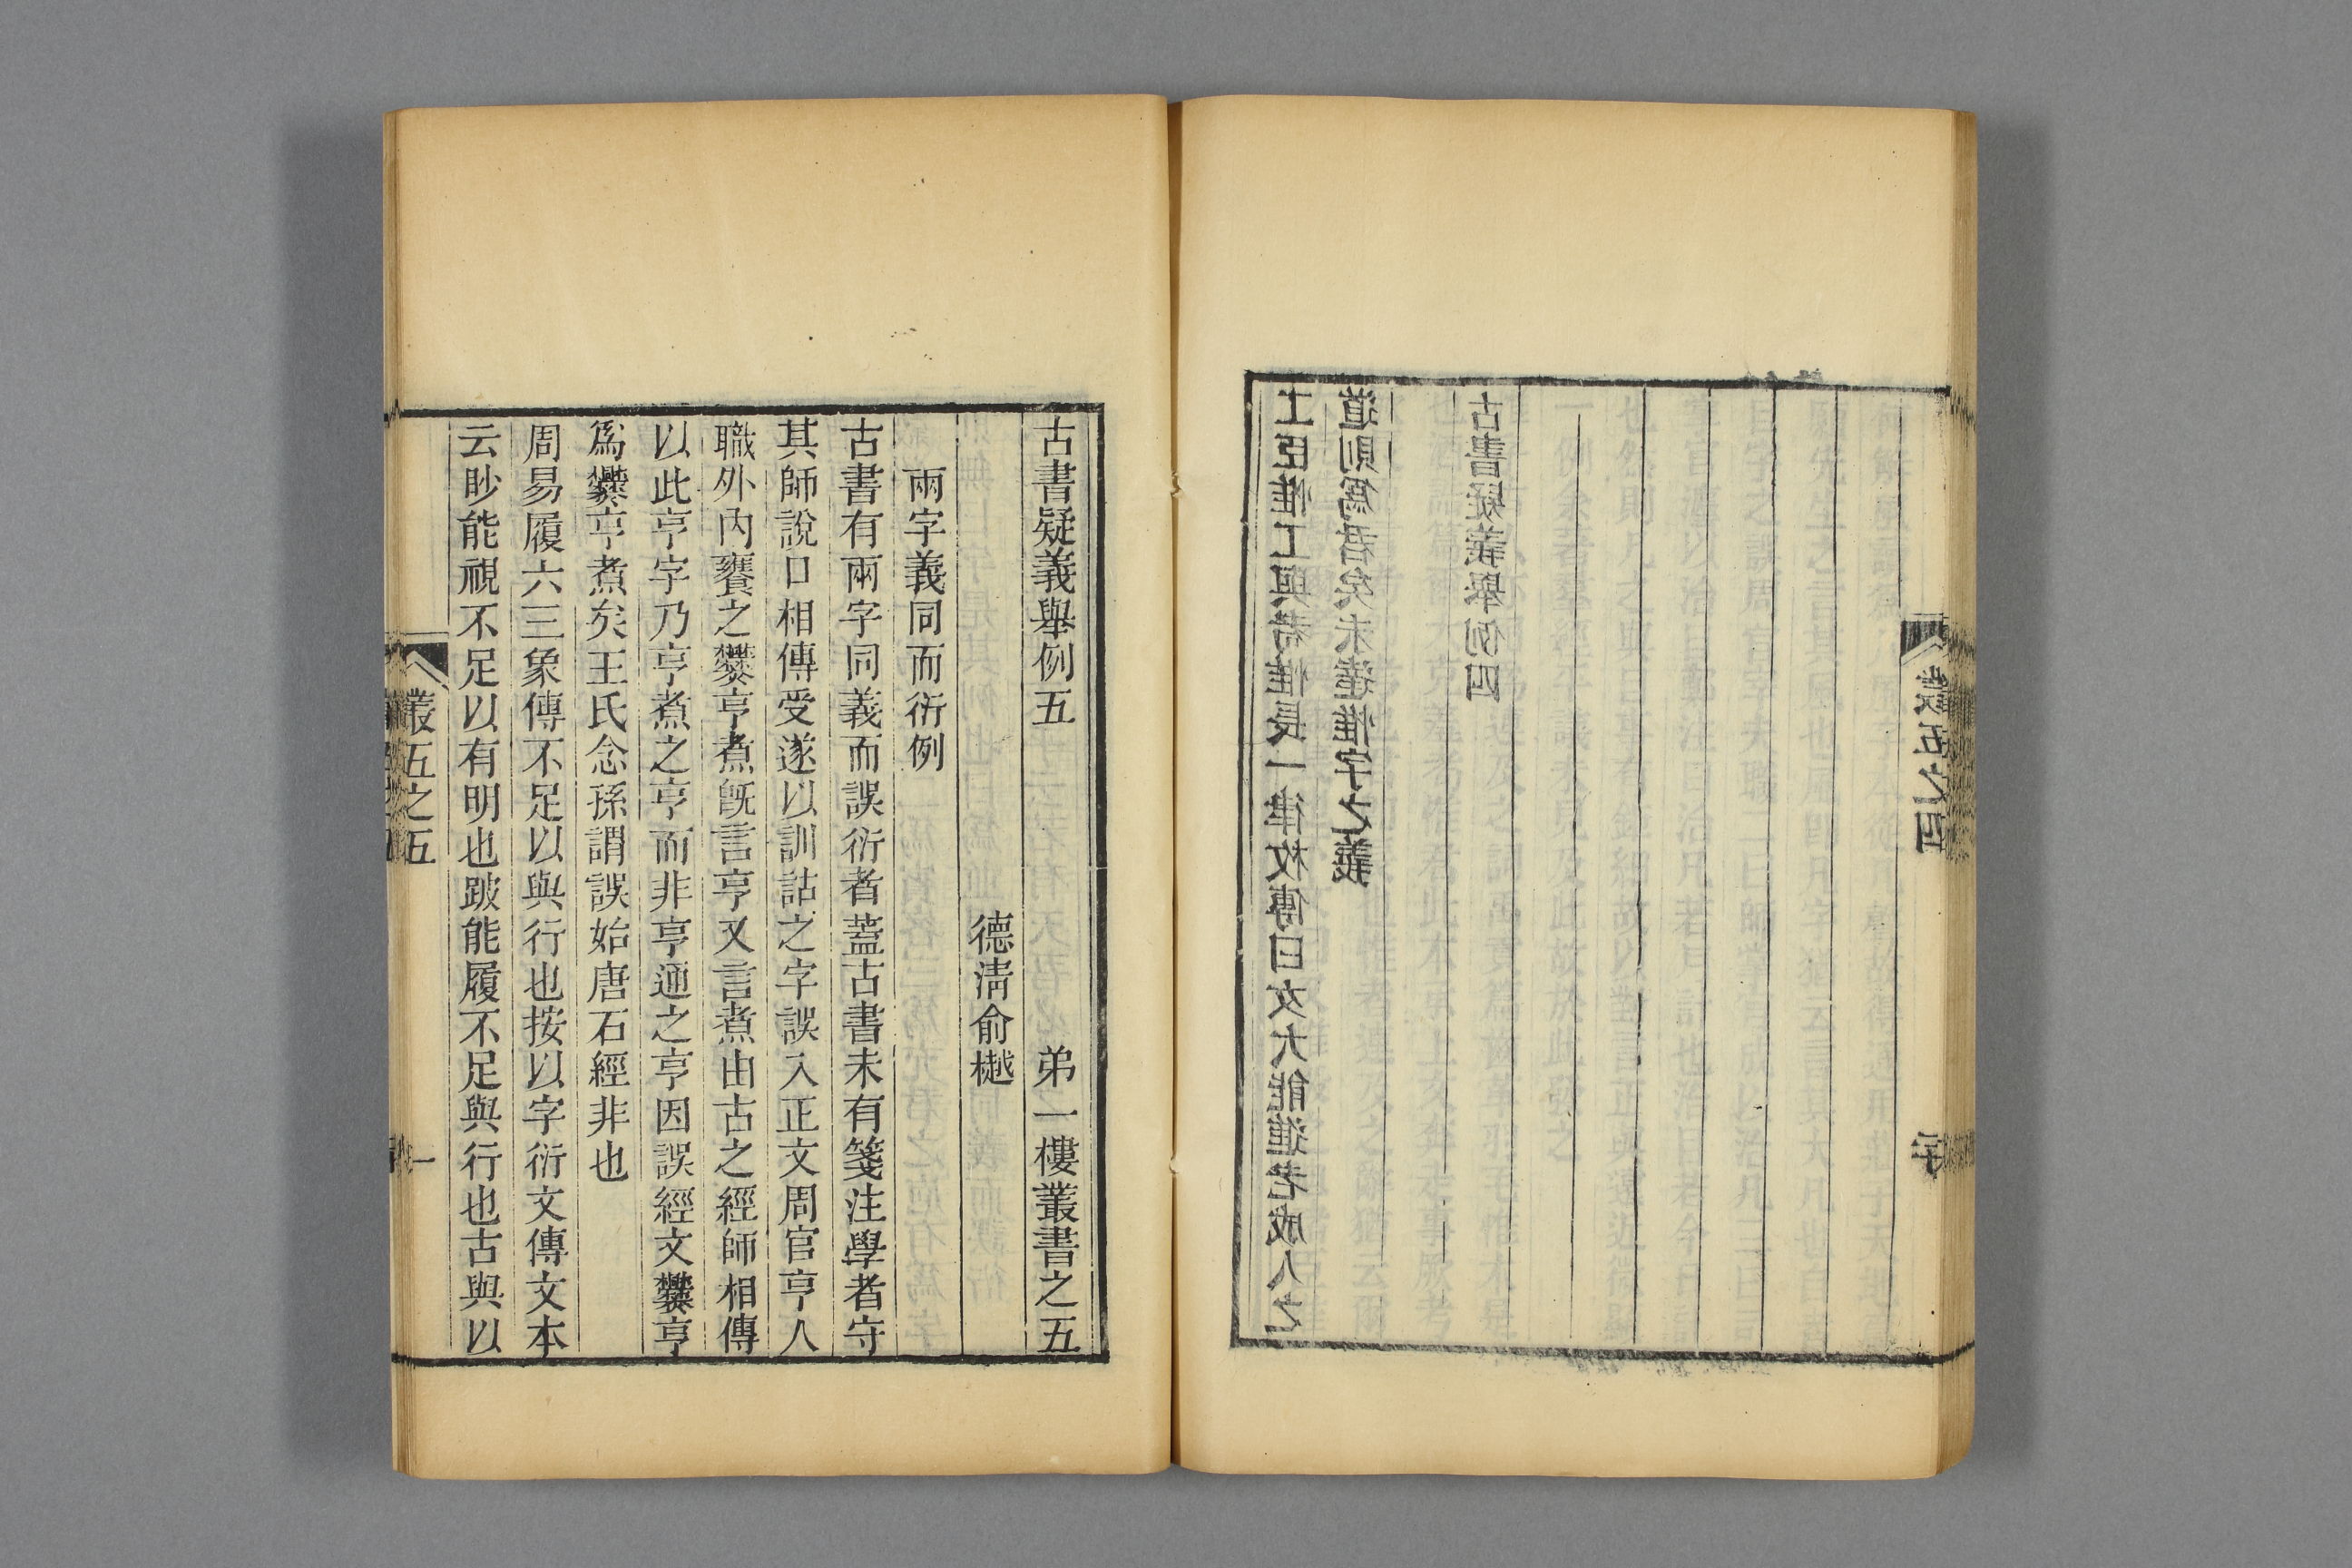 工臣惟工與耇惟長一律枚傳曰文大能進老成人之
道則爲君矣未達惟字之義
古書疑義舉例四
叢五之四
古書疑義舉例五　弟一樓叢書之五
德淸俞樾
兩字義同而衍例
古書有兩字同義而誤衍者蓋古書未有箋注學者守
其師說口相傳受遂以訓詁之字誤入正文周官亨人
職外內饔之爨亨煮旣言亨又言煮由古之經師相傳
以此亨字乃亨煮之亨而非亨通之亨因誤經文爨亨
爲爨亨煮矣王氏念孫謂誤始唐石經非也
周易履六三象傳不足以與行也按以字衍文傳文本
云眇能視不足以有明也跛能履不足與行也古與以
叢五之五
一